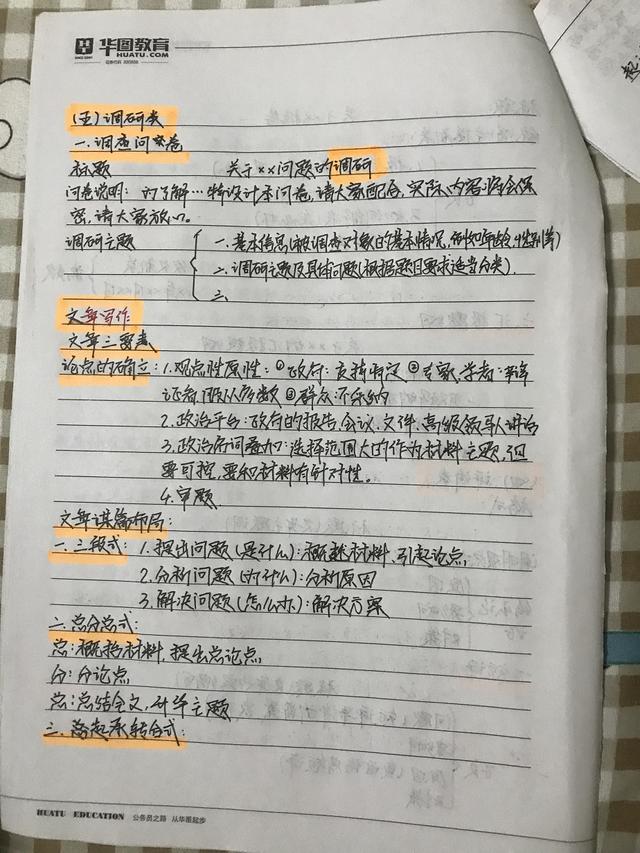 华图教育
HUATU.COM
(五)调研类
一.调查问卷
标题 关于××问题的调研
问卷说明: 为了解…特设计本问卷,请大家配合,实际内容将会保
密,请大家放心。
调研主题 一.基本信息(被调查对象的基本情况,例如年龄,性别等)
二.调研主题及具体问题(根据题目要求适当分类).
三.
文章写作:
文章三要素
论点的确立: 1.观点性原性: ①政府: 支持肯定 ②专家,学者:
证利,服从多数 ③群众:不采纳
2.政治平台: 政府的报告,会议,文件,高级领导人讲话
3.政治名词叠加: 选择范围大的作为材料主题,但
要可控,要和材料有针对性。
4.审题
文章谋篇布局:
一.三段式: 1.提出问题(是什么): 概括材料,引起论点,
2.分析问题(为什么): 分析原因
3.解决问题(怎么办): 解决方案
二.总分总式:
总: 概括材料,提出总论点,
分: 分论点
总: 总结全文,升华主题
三.启起承转合式:
HUATU EDUCATION 公务员之路 从华图起步